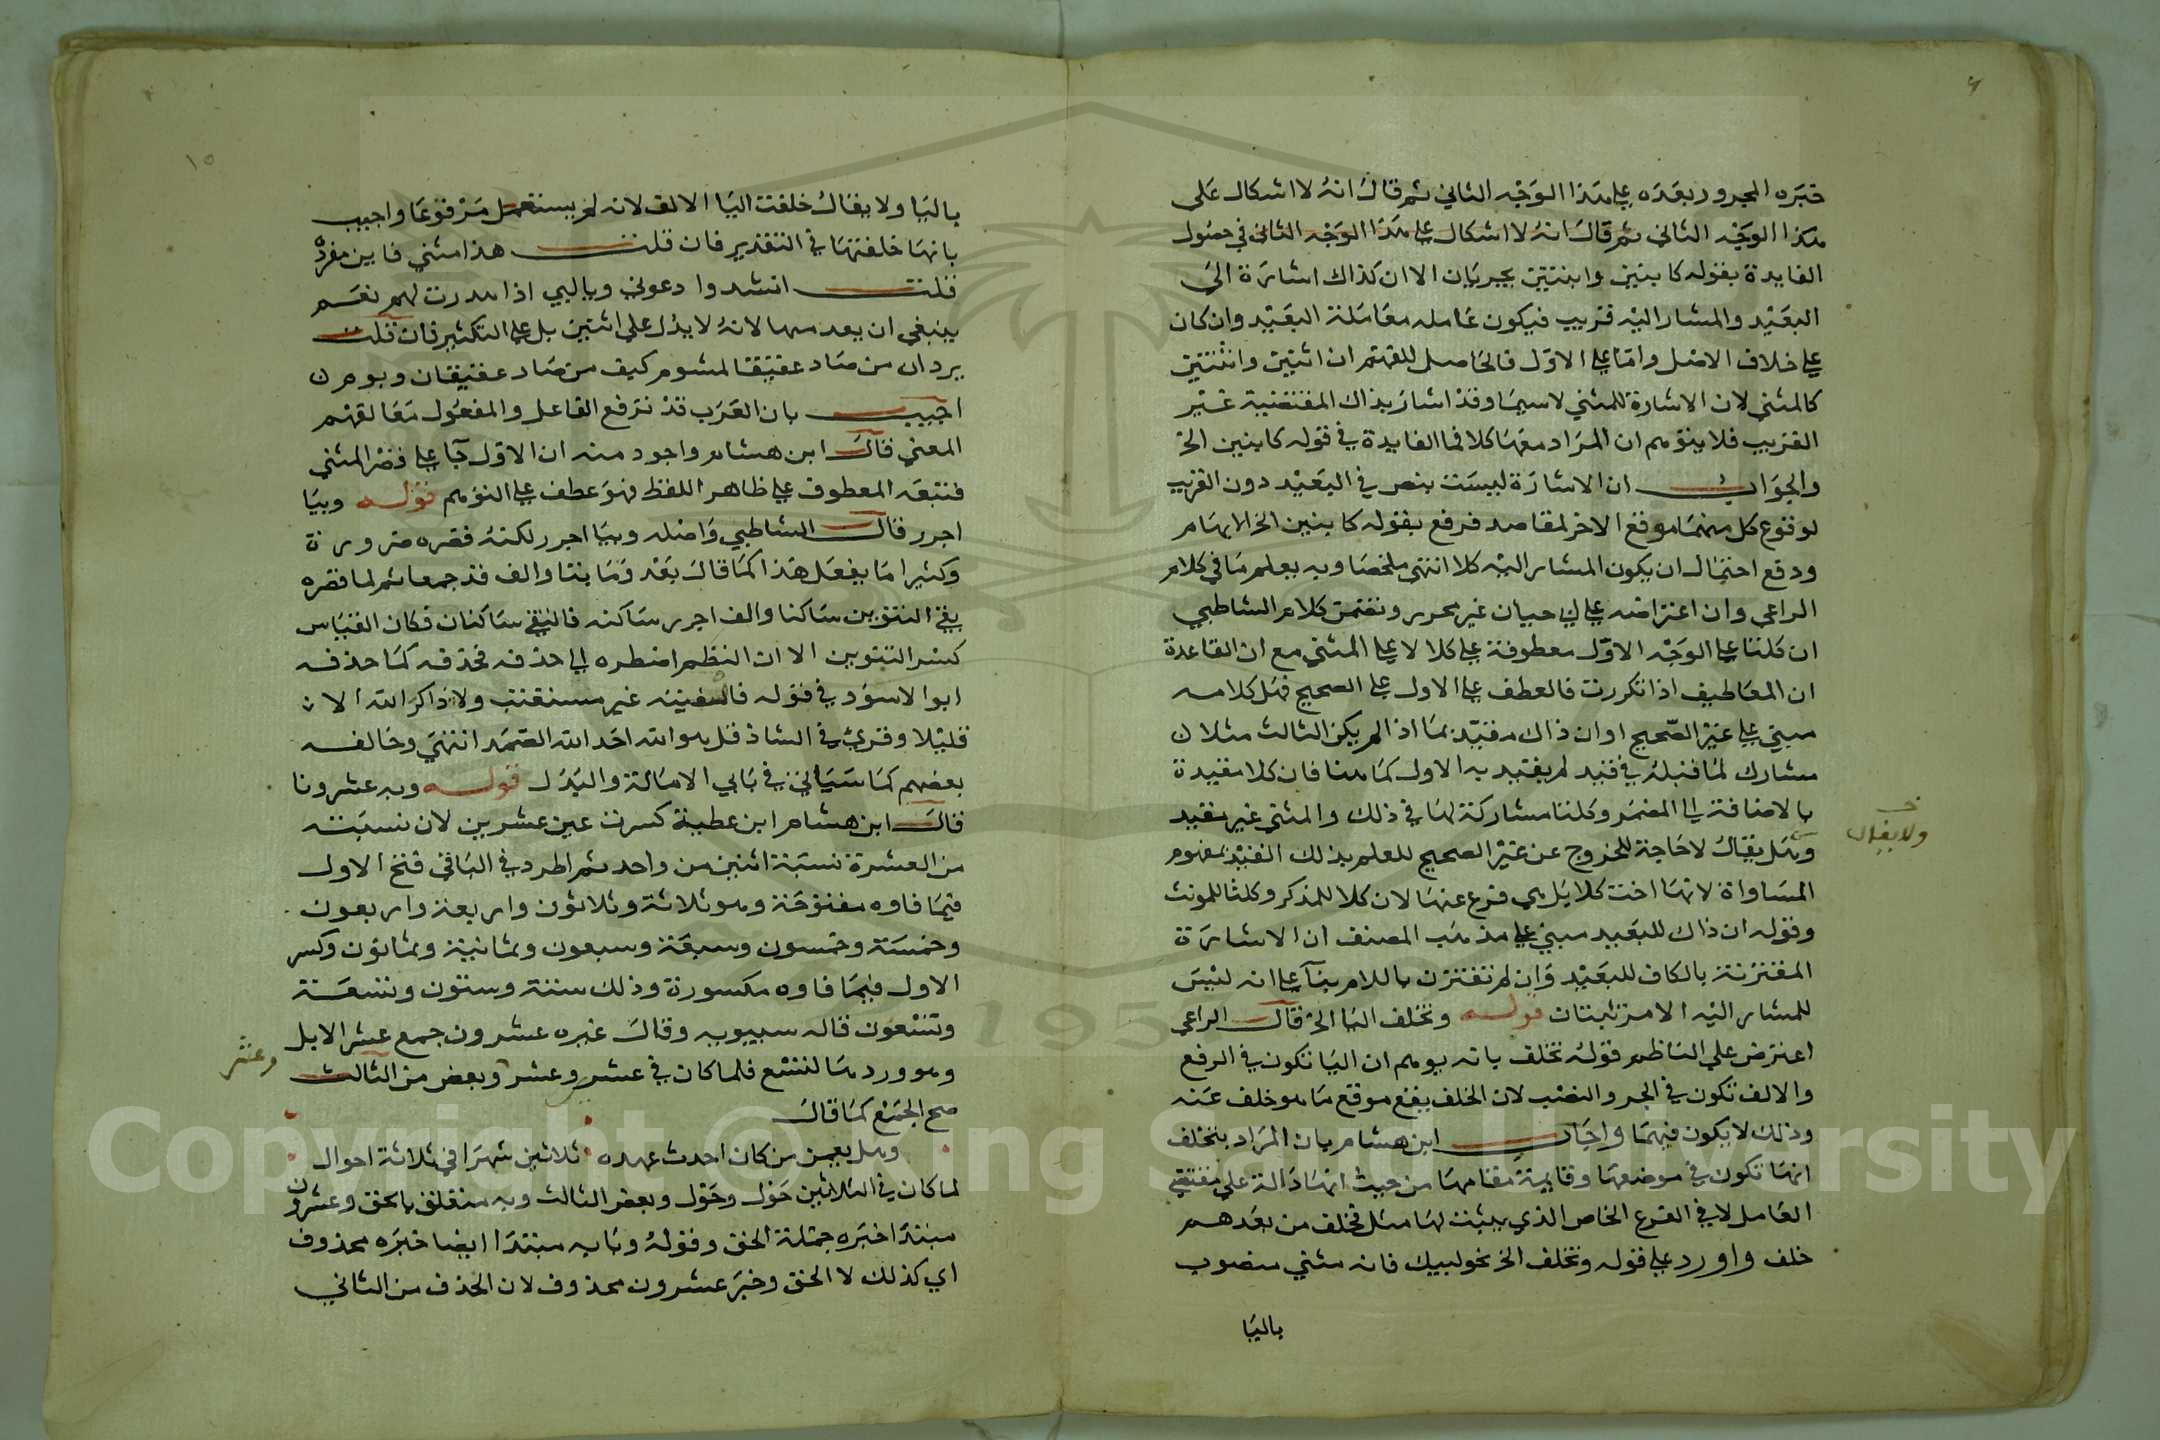 خبره المجرور بعده على هذا الوجه الثاني ثم قال انه لا اشكال على
هذا الوجه الثاني ثم قال انه لا اشكال على هذا الوجه الثاني في حصول
الفايدة بقوله كابنين وابنتين يجريان الا ان كذاك اشارة الى
البعيد والمشار اليه قريب فيكون عامله معاملة البعيد وان كان
على خلاف الاصل واما على الاول فالحاصل للفهم ان اثنين واثنتين
كالمثني لان الاشارة للمثني لا سيما وقد اشار بذاك المقتضية غير
القريب فلا يتوهم ان المراد معها كلا فما الفايدة في قوله كابنين الخ
والجواب ان الاشارة ليست بنص في البعيد دون القريب
لوقوع كل منهما موقع الاخر لمقاصد فرفع بقوله كابنين الخ الابهام
ودفع احتمال ان يكون المشار اليه كلا انتهى ملخصا وبه يعلم ما في كلام
الراعي وان اعتراضه على ابي حيان غير محرر وتضمن كلام الشاطبي
ان كلتا على الوجه الاول معطوفة على كلا لا على المثني مع ان القاعدة
ان المعاطيف اذا تكررت فالعطف على الاول على الصحيح فهل كلامه
مبني على غير الصحيح او ان ذاك مقيد بما اذا لم يكن الثالث مثلا ن
مشارك لما قبله في قيد لم يقيد به الاول كما هنا فان كلا مقيدة
بالاضافة الى المضمر وكلتا مشاركة لها في ذلك والمثني غير مقيد
وهل يقال لا حاجة للخروج عن غير الصحيح للعلم بذلك القيد بمفهوم
ولا يقال
المساواة لانها اخت كلا بل هي فرع عنها لان كلا للمذكر وكلتا للمونث
وقوله ان ذاك للبعيد مبني على مذهب المصنف ان الاشارة
المقترنة بالكاف للبعيد وان لم تقترن باللام بنآ على انه ليس
للمشار اليه الا مرتبتان قوله وتخلف اليا الخ قال الراعي
اعترض على الناظم قوله تخلف بانه يوهم ان اليا تكون في الرفع
والالف تكون في الجر والنصب لان الخلف يقع موقع ما هو خلف عنه
وذلك لا يكون فيهما واجاب ابن هشام بان المراد بتخلف
انها تكون في موضعها وقايمة مقامها من حيث انها دالة على مقتضي
العامل لا في الفرع الخاص الذي يثبت لها مثل فخلف من بعدهم
خلف واورد على قوله وتخلف الخ نحو لبيك فانه مثني منصوب
باليا
١٥
باليا ولا يقال خلفت اليا الالف لانه لم يستعمل مرفوعا واجيب
بانها خلفتها في التقدير فان قلت هذا مثني فاين مفرده
قلت انشدوا دعوني ويا لبي اذا هدرت لهم نعم
ينبغي ان يعد منها لانه لا يدل على اثنين بل على التكثير فان قلت
يرد ان من صاد عقعقا لمشوم كيف من صاد عقعقان وبوم ن
اجيب بان العرب قد ترفع الفاعل والمفعول معا لفهم
المعني قال ابن هشام واجود منه ان الاول جآ على قصر المثني
فتتبعه المعطوف على ظاهر اللفظ فهو عطف على التوهم قوله وبيا
اجرر قال الشاطبي واصله وبيا اجرر لكنه قصره ضرورة
وكثيرا ما يفعل هذا كما قال بعد وما بتا والف قد جمعا ثم لما قصره
بقي التنوين ساكنا والف اجرر ساكنه فالتقي ساكنان فكان القياس
كسر التنوين الا ان النظم اضطره الى حذفه فحذفه كما حذفه
ابو الاسود في قوله فالفيته غير مستعتب ولا ذاكر الله الا
قليلا وقرئ في الشاذ قل هو الله احد الله الصمد انتهي وخالفه
بعضهم كما سياتي في بابي الامالة والبدل قوله وبه عشرونا
قال ابن هشام ابن عطية كسرت عين عشرين لان نسبته
من العشرة نسبة اثنين من واحد ثم اطرد في الباقي فتح الاول
فيما فاوه مفتوحة وهو ثلاثة وثلاثون واربعة واربعون
وخمسة وخمسون وسبعة وسبعون وثمانية وثمانون وكسر
الاول فيما فاوه مكسورة وذلك ستة وستون وتسعة
وتسعون قاله سيبويه وقال غيره عشرون جمع عشر الابل
وهو وردها لتسع فلما كان في عشر وعشر وبعض من الثالث
وعشر
صح الجمع كما قال
وهل يعمن من كان احدث عهده ثلاثين شهرا في ثلاثة احوال
لما كان في الثلاثين حول وحول وبعض الثالث وبه متعلق بالحق وعشرون
مبتدا خبره جملة الحق وقوله وبابه مبتدا ايضا خبره محذوف
اي كذلك لا الحق وخبر عشرون محذوف لان الحذف من الثاني
Copyright © King Saud University
195